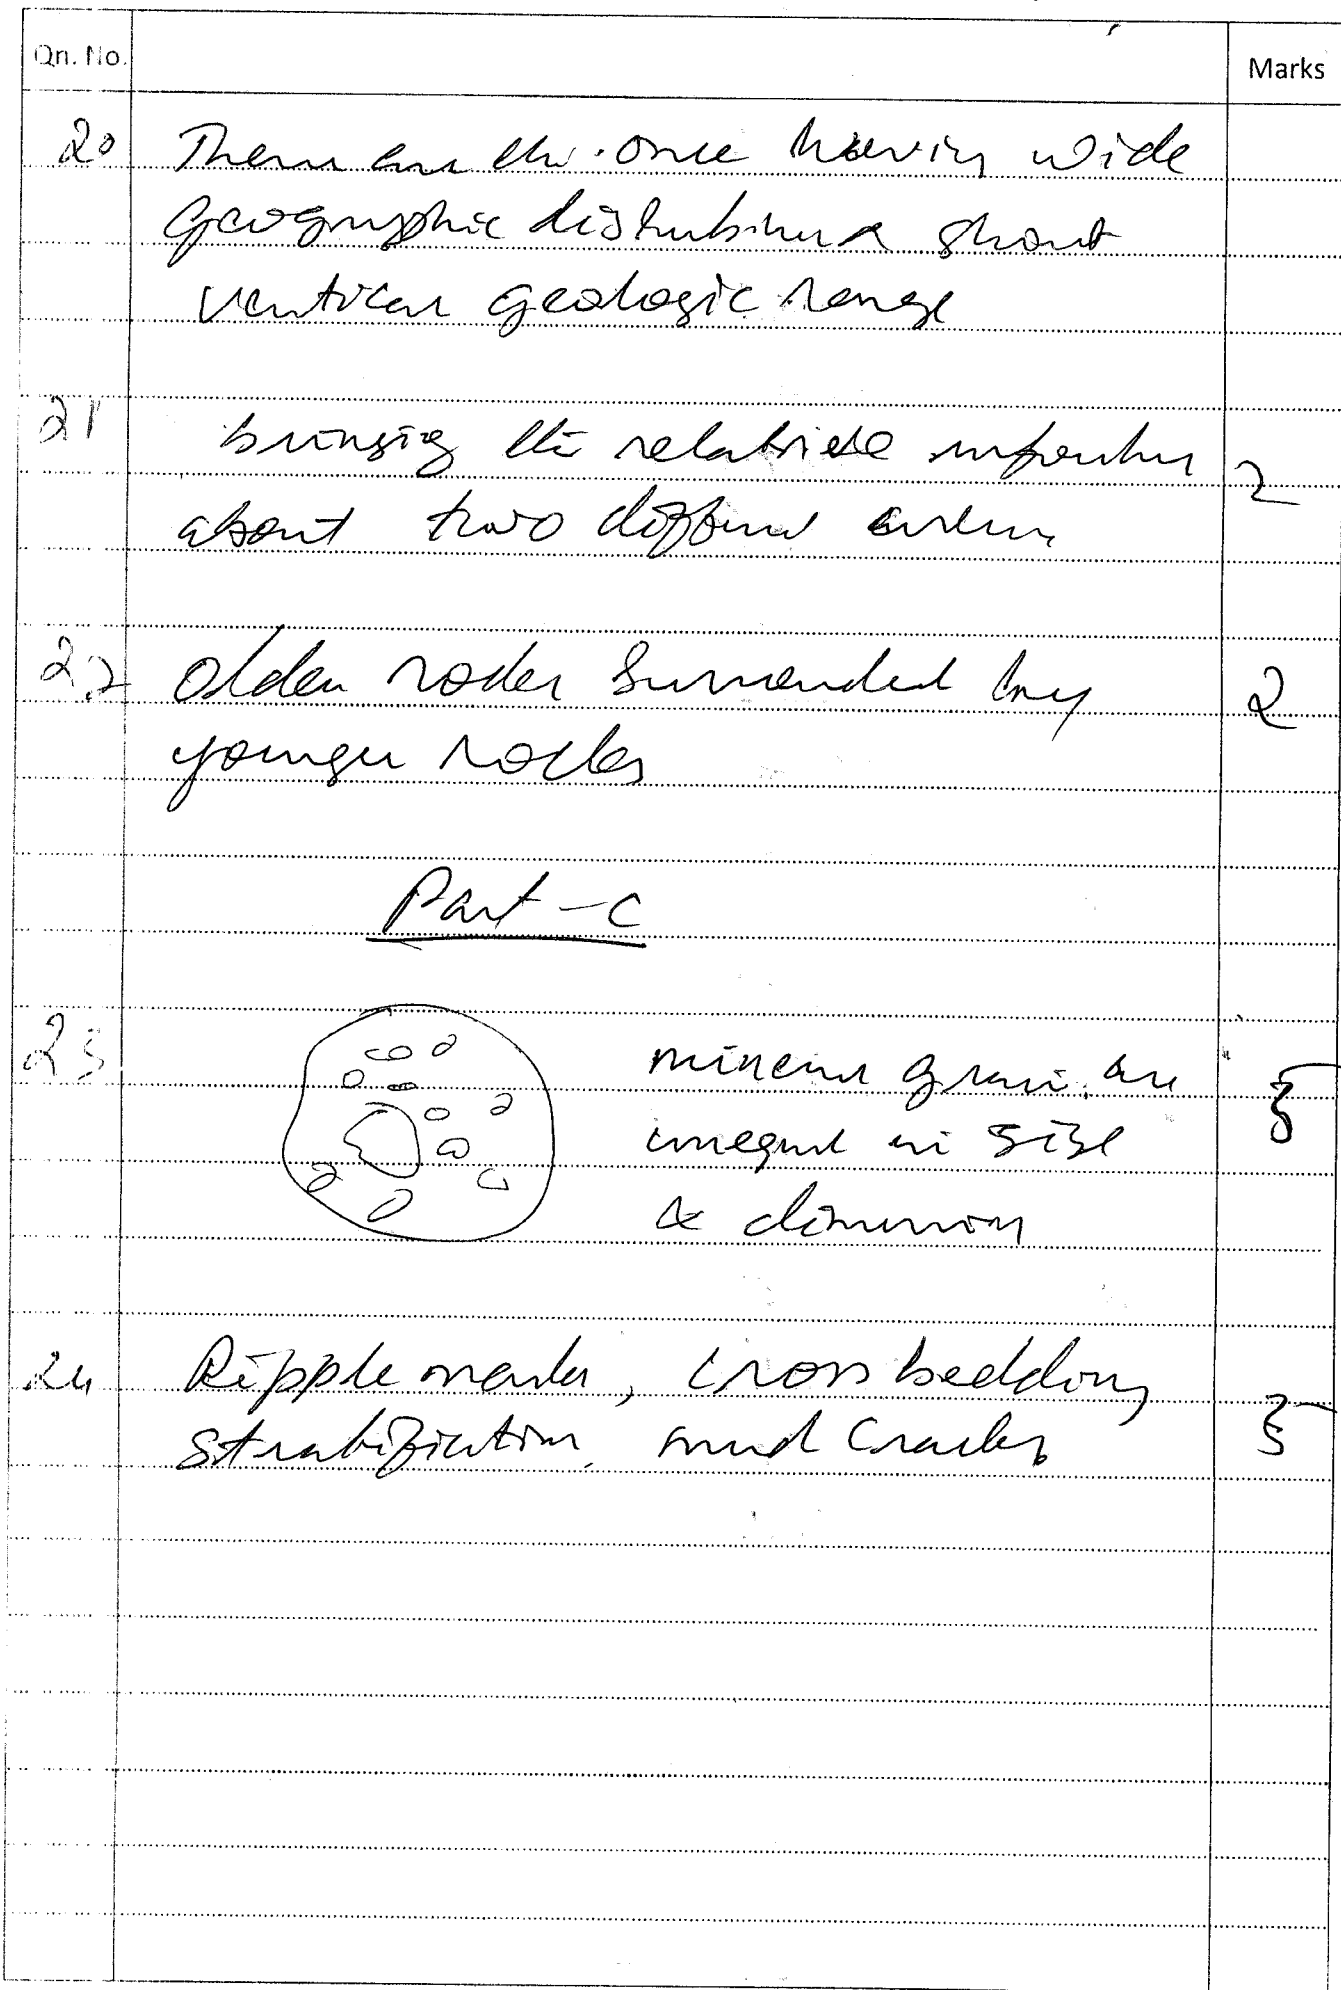 Qn. No. Marks
20 These are the once having wide
geographic distribution & short
vertical geologic range
21 bringing the relative information 2
about two different areas
22 Older rocks surrounded by 2
younger rocks
Part - C
23 mineral grains are 5
unequal in size
& dimension
24 Ripple marks, cross bedding 5
stratification, mud cracks